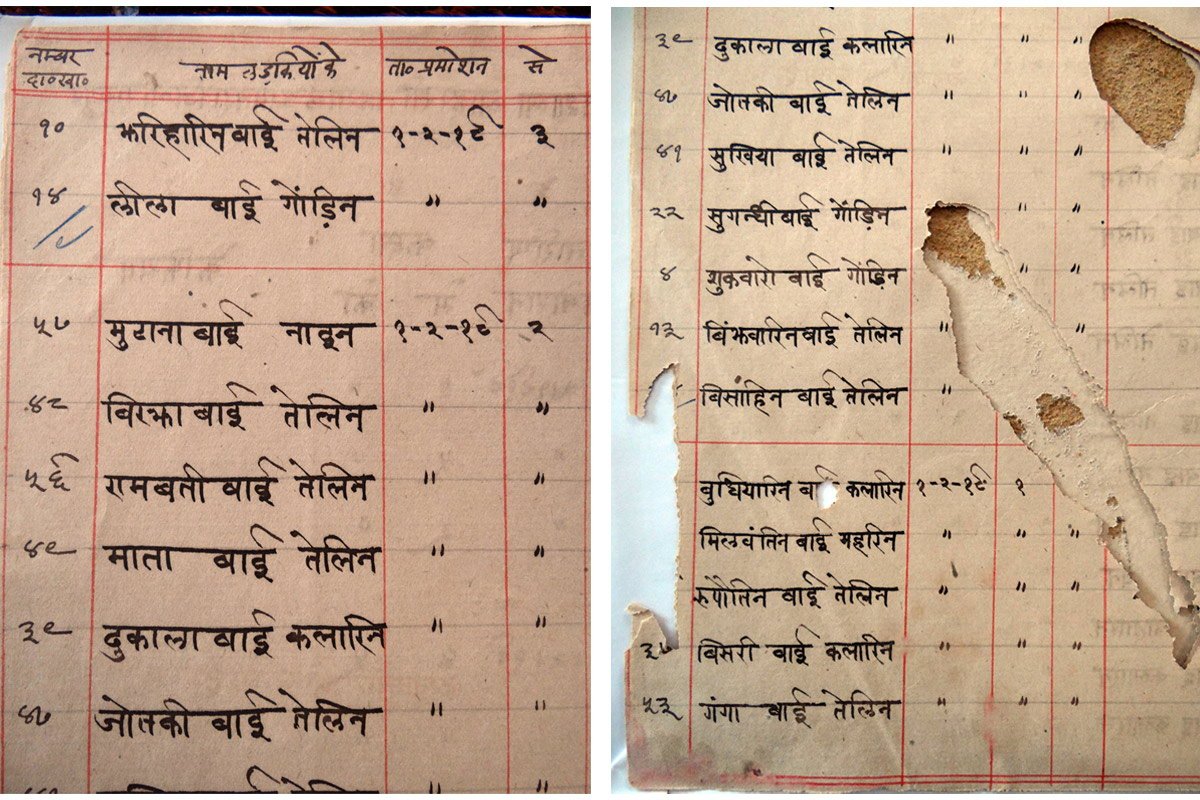 नम्बर दा०खा० नाम लड़कियों के ता० प्रमोशन से
१० झरिहारिन बाई तेलिन १-२-१८ ३
१४ लीला बाई गोंड़िन " "
५७ मुटाना बाई नाइन १-२-१८ २
४८ बिरझा बाई तेलिन " "
५६ रामबती बाई तेलिन " "
४९ माता बाई तेलिन " "
३९ दुकाला बाई कलारिन " "
४७ जोतकी बाई तेलिन " "
३९ दुकाला बाई कलारिन " " "
४७ जोतकी बाई तेलिन " " "
४१ सुखिया बाई तेलिन " " "
२२ सुगन्धी बाई गोंड़िन " "
४ शुकवारो बाई गोंड़िन " "
१३ बिंझवारिन बाई तेलिन " "
बिसाहिन बाई तेलिन "
बुधियारिन बाई कलारिन १-२-१८ १
मिलवंतिन बाई महरिन " " "
रुपौतिन बाई तेलिन " " "
३७ बिसरी बाई कलारिन " " "
५३ गंगा बाई तेलिन " " "